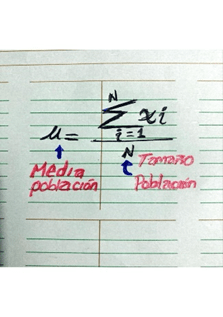 μ = \frac{\sum_{i=1}^{N} xi}{N}
Media
población
Tamaño
Población